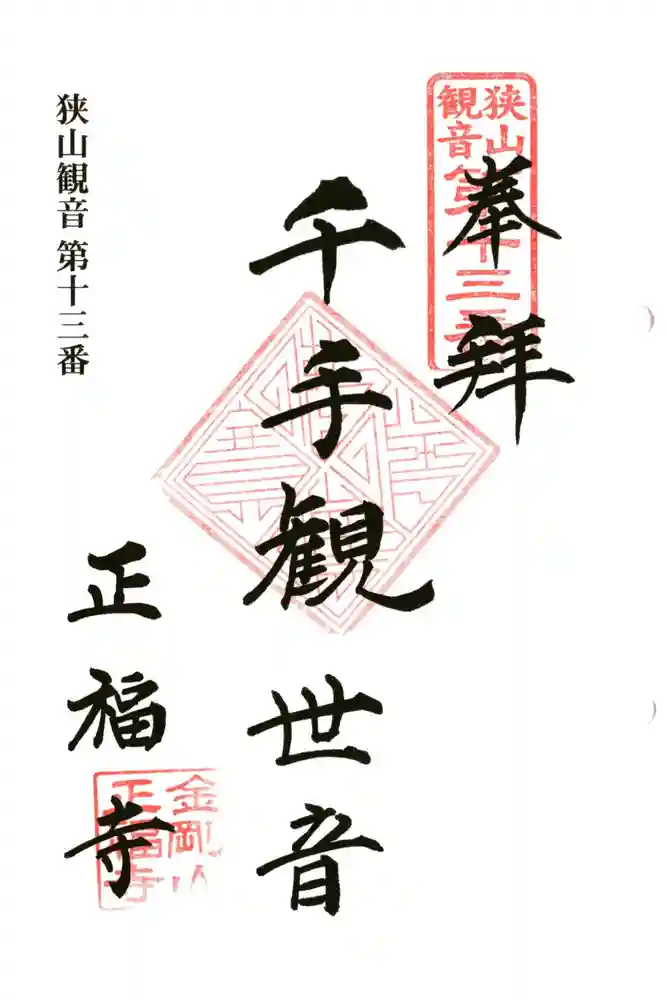 奉拝
狭山
観音
第十三番
千手観世音
正福寺
金剛山
正福寺
狭山観音 第十三番